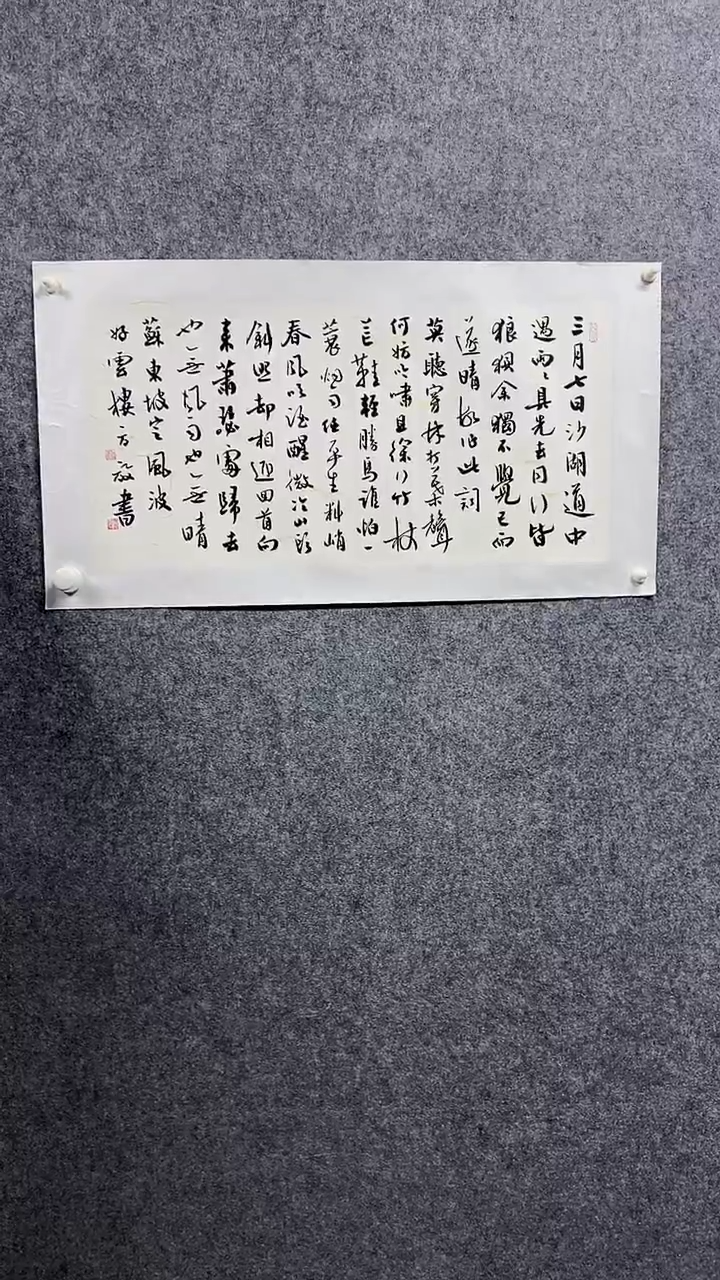 三月七日沙湖道中
遇雨雨具先去同行皆
狼狽余獨不覺已而
遂晴故作此詞
莫聽穿林打葉聲
何妨吟嘯且徐行竹杖
芒鞋輕勝馬誰怕一
蓑烟雨任平生料峭
春風吹酒醒微冷山頭
斜照却相迎回首向
來蕭瑟處歸去
也無風雨也無晴
蘇東坡定風波
好雲樓方
書